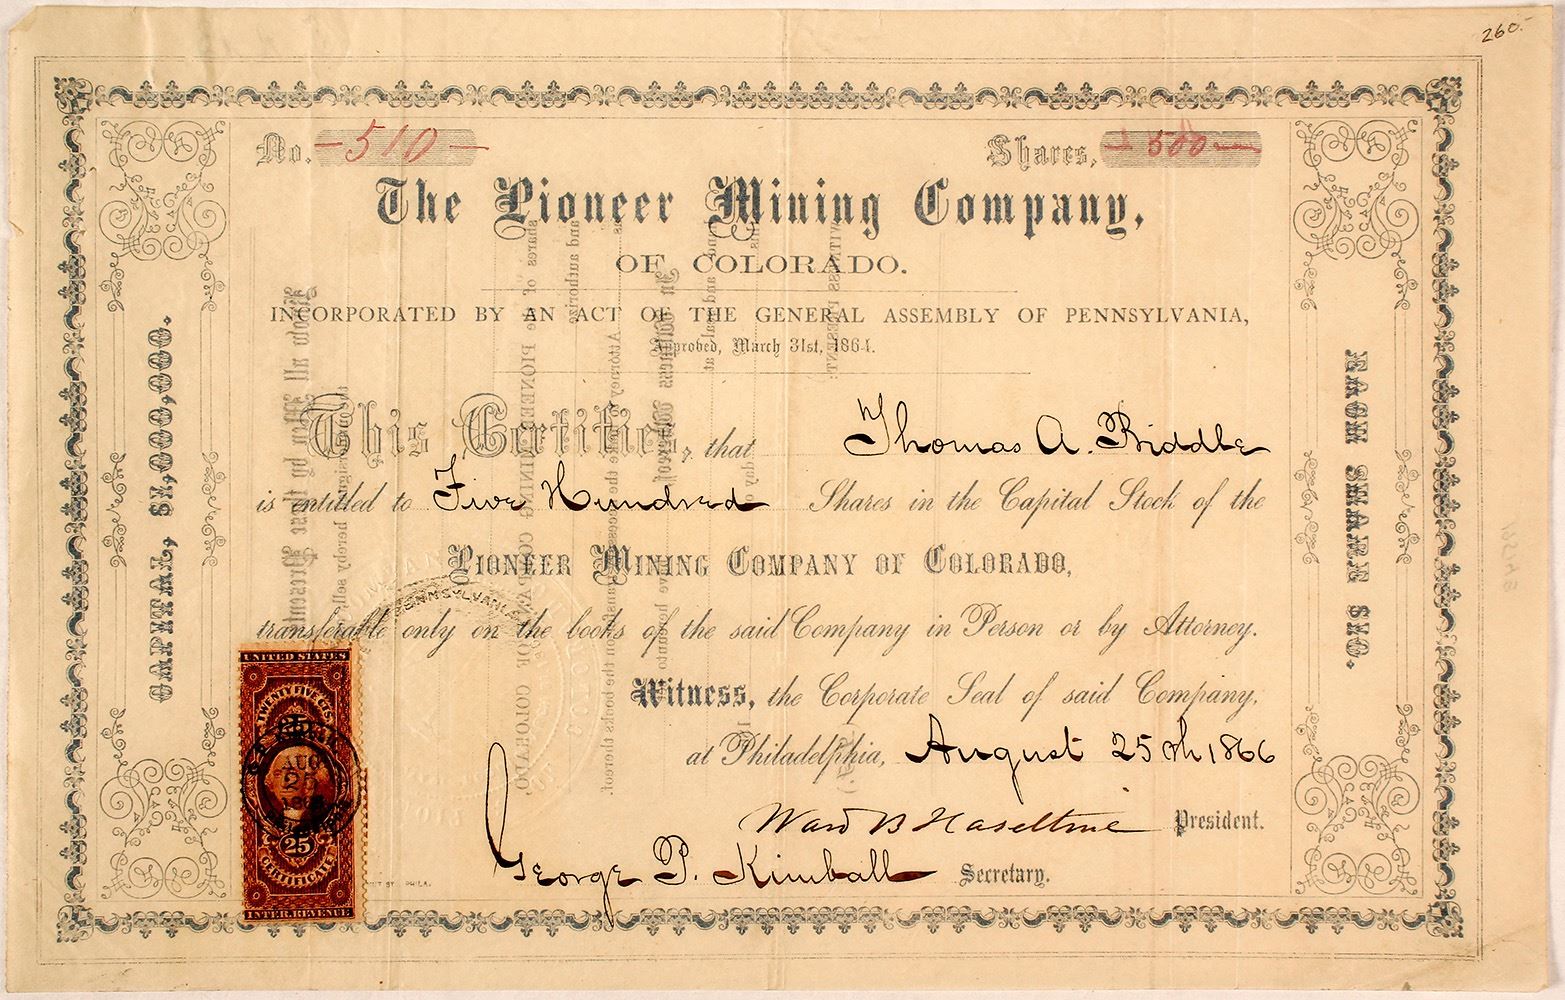 260.-
No. -510-
Shares, - 500 -
The Pioneer Mining Company,
OF COLORADO.
INCORPORATED BY AN ACT OF THE GENERAL ASSEMBLY OF PENNSYLVANIA,
Approved, March 31st, 1864.
This Certifies, that Thomas A. Biddle
is entitled to Five Hundred Shares in the Capital Stock of the
PIONEER MINING COMPANY OF COLORADO,
transferable only on the books of the said Company in Person or by Attorney.
Witness, the Corporate Seal of said Company,
at Philadelphia, August 25th 1866
Ward B Haseltine President.
George P. Kimball Secretary.
CAPITAL, $1,000,000.
EACH SHARE $10.
PENNSYLVANIA
UNITED STATES
TWENTY FIVE CTS.
AUG
25
25
CERTIFICATE
INTER. REVENUE
PHILA.